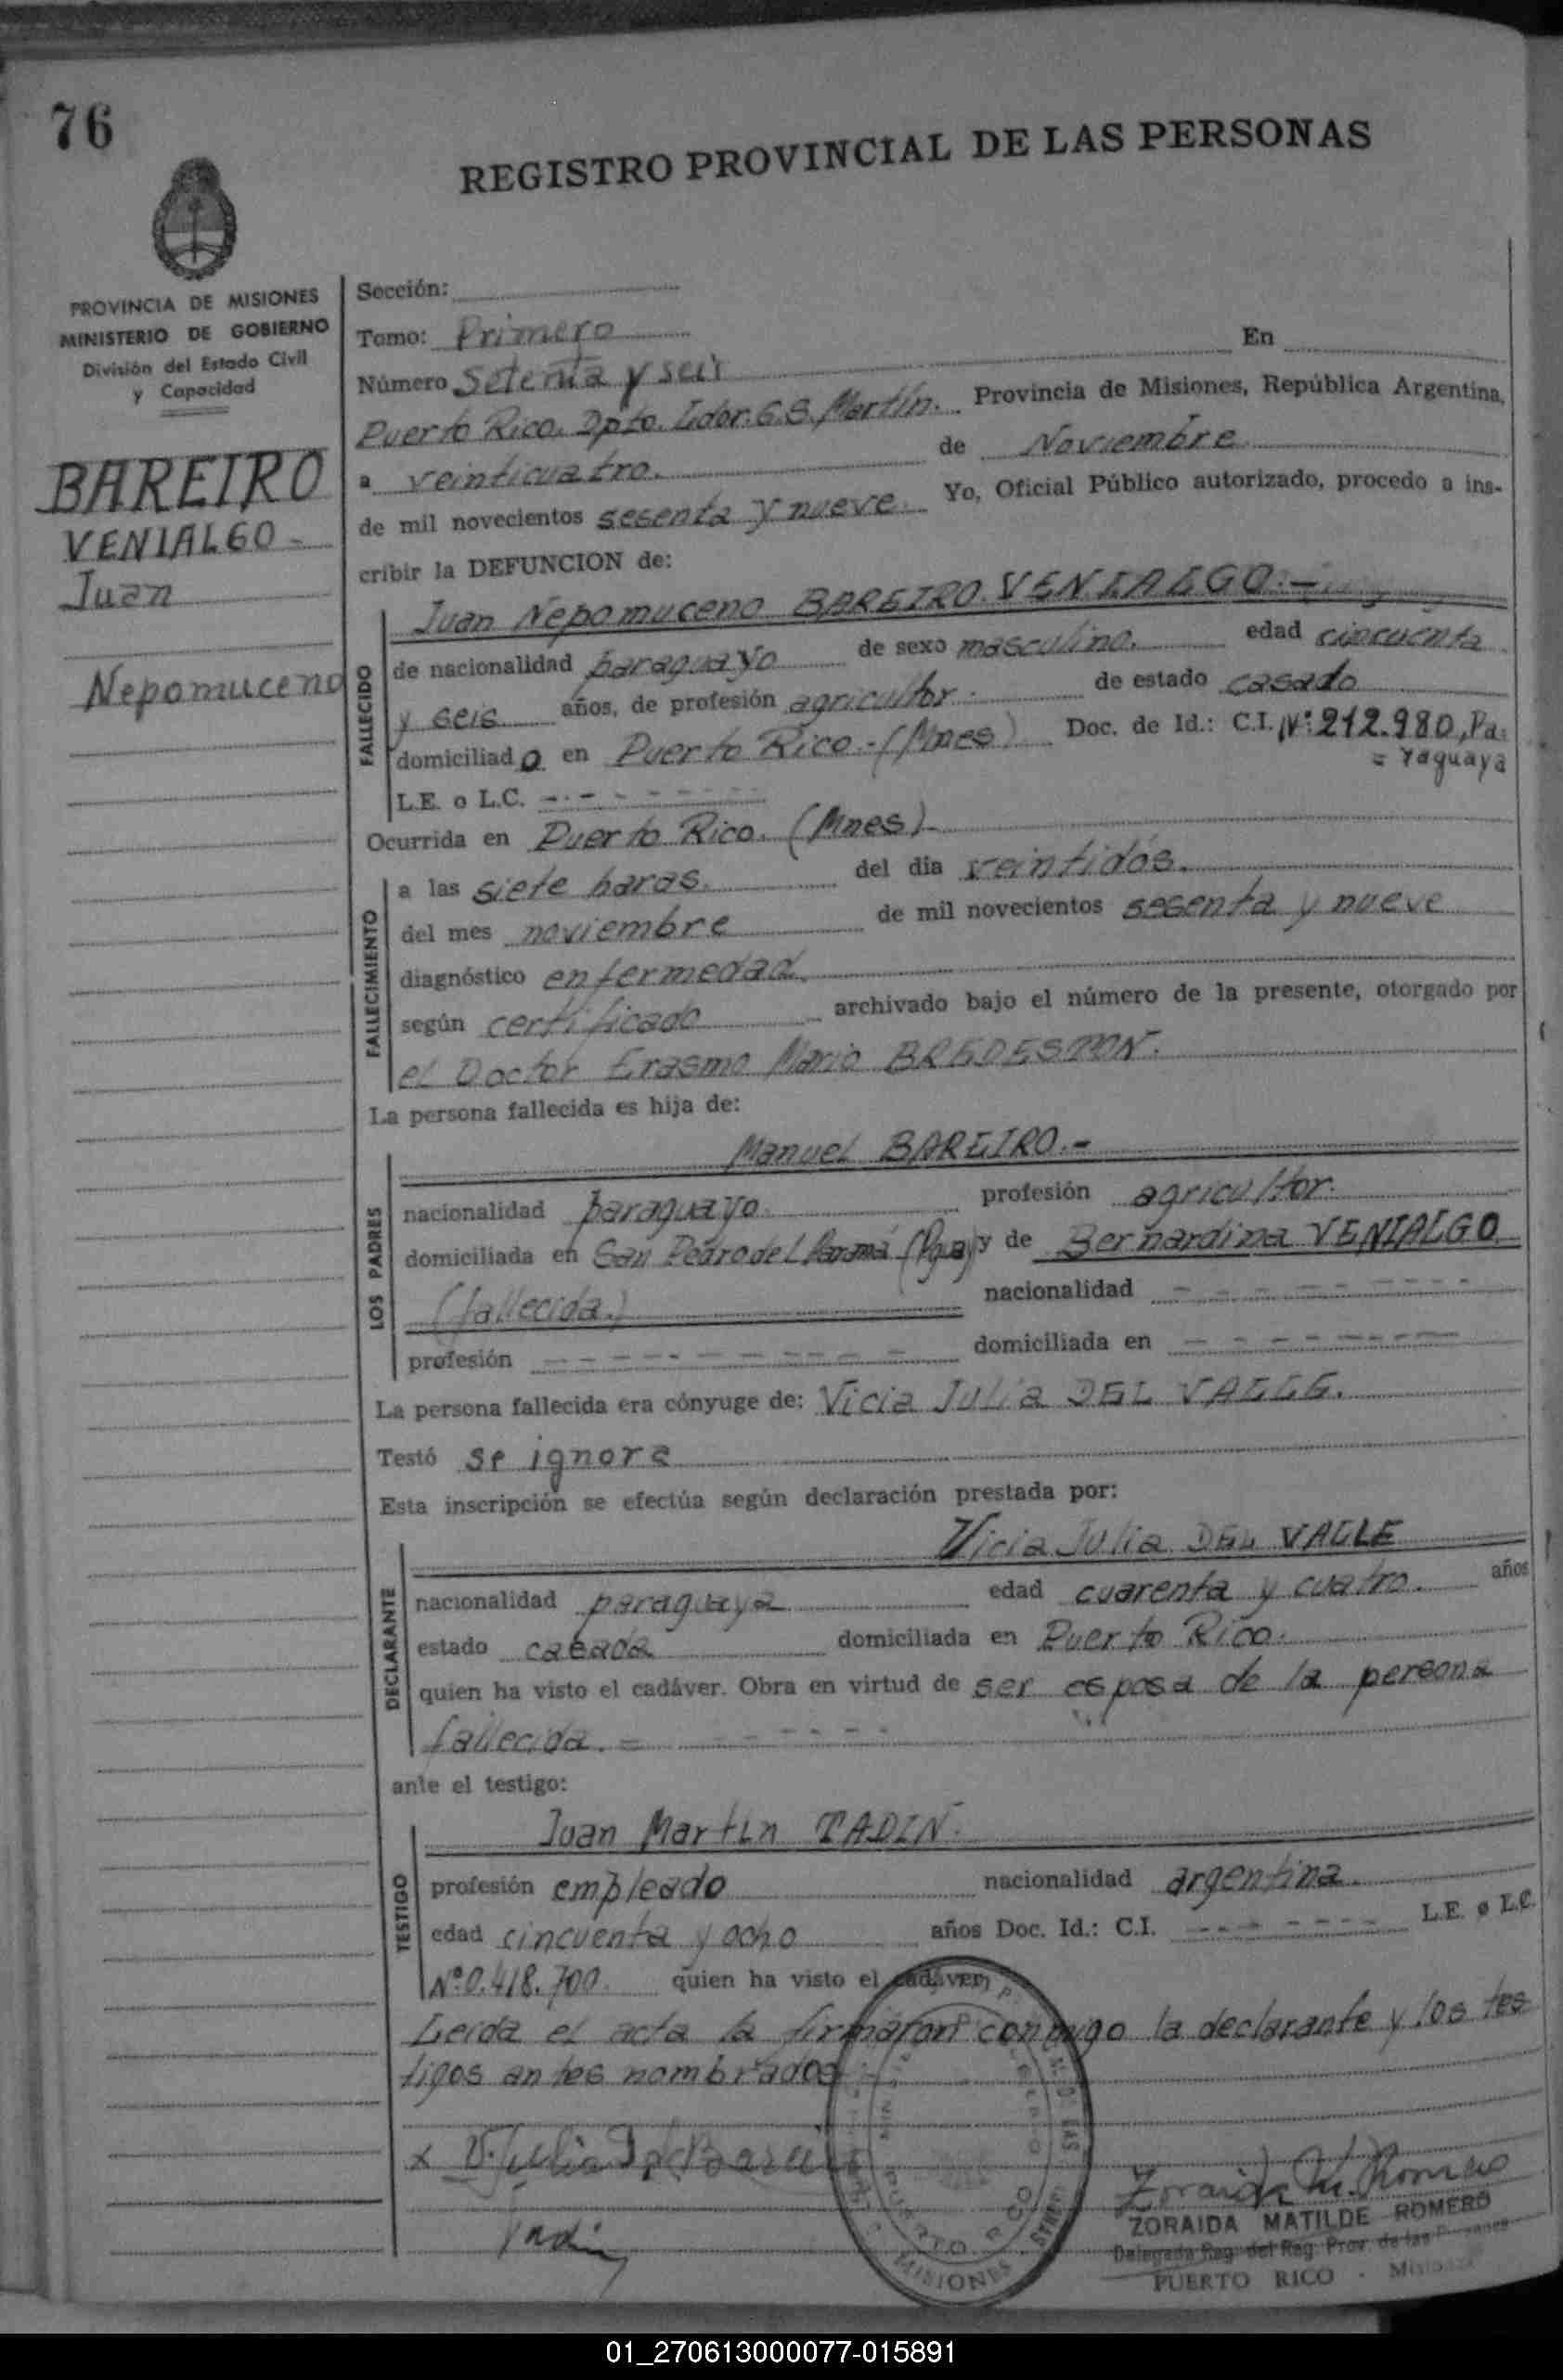 76
REGISTRO PROVINCIAL DE LAS PERSONAS
PROVINCIA DE MISIONES
MINISTERIO DE GOBIERNO
División del Estado Civil
y Capacidad
BAREIRO
VENIALGO -
Juan
Nepomuceno
Sección:
Tomo: Primero
Número Setenta y seis En
Puerto Rico. Dpto. Ldor. G. S. Martín. Provincia de Misiones, República Argentina,
a veinticuatro. de Noviembre
de mil novecientos sesenta y nueve. Yo, Oficial Público autorizado, procedo a ins-
cribir la DEFUNCION de:
Juan Nepomuceno BAREIRO VENIALGO.-
FALLECIDO
de nacionalidad paraguayo de sexo masculino. edad cincuenta
y seis años, de profesión agricultor. de estado casado
domiciliado en Puerto Rico.-(Mnes) Doc. de Id.: C.I. Nº: 212.980, Pa
= raguaya
L.E. o L.C. - - - - - - - -
Ocurrida en Puerto Rico. (Mnes)-
FALLECIMIENTO
a las siete horas. del día veintidós.
del mes noviembre de mil novecientos sesenta y nueve
diagnóstico enfermedad.
según certificado archivado bajo el número de la presente, otorgado por
el Doctor Erasmo Mario BREDESTON.
La persona fallecida es hija de:
Manuel BAREIRO.-
LOS PADRES
nacionalidad paraguayo. profesión agricultor.
domiciliada en San Pedro del Paraná (Pguay) y de Bernardina VENIALGO
(fallecida.) nacionalidad - - - - - - - -
profesión - - - - - - - - - domiciliada en - - - - - - - -
La persona fallecida era cónyuge de: Vicia Julia DEL VALLE.
Testó se ignora
Esta inscripción se efectúa según declaración prestada por:
Vicia Julia DEL VALLE
DECLARANTE
nacionalidad paraguaya edad cuarenta y cuatro. años
estado casada domiciliada en Puerto Rico.
quien ha visto el cadáver. Obra en virtud de ser esposa de la persona
fallecida. = - - - - - -
ante el testigo:
Juan Martin TADIN.
TESTIGO
profesión empleado nacionalidad argentina.
edad cincuenta y ocho años Doc. Id.: C.I. - - - - - - - - L.E. o L.C.
Nº 0.418.700. quien ha visto el cadáver.
Leida el acta la firmaron conmigo la declarante y los tes
tigos antes nombrados
x V. Julia D.
Tadin
PUERTO RICO
MISIONES
Zoraida M. Romero
ZORAIDA MATILDE ROMERO
Delegada Reg. del Reg. Prov. de las Personas
PUERTO RICO - Misiones
01_270613000077-015891